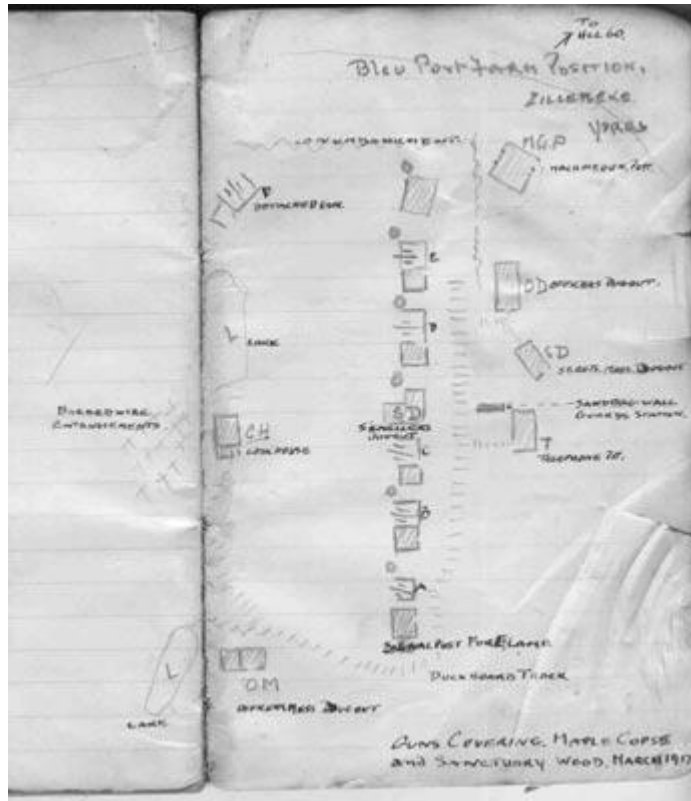 TO
HILL 60.
Bleu Post Farm Position,
ZILLEBEKE
YPRES
MGP
F
DETACHED GUN.
E
OD OFFICERS DUGOUT.
D
L
LAKE
SD
SERGTS. MESS. DUGOUT
SANDBAG WALL
GUARDS STATION.
BARBEDWIRE
ENTANGLEMENTS
CH
COOKHOUSE
SD
SIGNALLERS
DUGOUT
C
T
TELEPHONE PIT.
B
A
SIGNAL POST FOR E LAMP.
DUCKBOARD TRACK
L
LAKE
OM
OFFICERS MESS DUGOUT
GUNS COVERING. MAPLE COPSE
and SANCTUARY WOOD. MARCH 1917